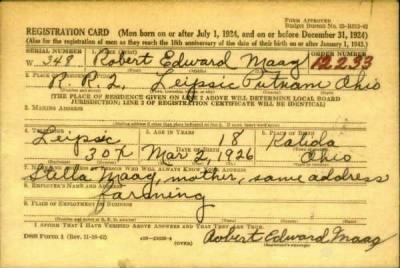 FORM APPROVED
REGISTRATION CARD (Men born on or after July 1, 1924, and on or before December 31, 1924)
(Also for the registration of men as they reach the 18th anniversary of the date of their birth on or after January 1, 1943.)
SERIAL NUMBER 1. NAME (Print) ORDER NUMBER
W 348 Robert Edward Maag 12233
(First) (Middle) (Last)
2. PLACE OF RESIDENCE (Print)
R.R.2, Leipsic Putnam Ohio
[THE PLACE OF RESIDENCE GIVEN ON LINE 2 ABOVE WILL DETERMINE LOCAL BOARD
JURISDICTION; LINE 2 OF REGISTRATION CERTIFICATE WILL BE IDENTICAL]
3. MAILING ADDRESS
4. TELEPHONE 5. AGE IN YEARS 6. PLACE OF BIRTH
Leipsic 18 Kalida
DATE OF BIRTH
30X Mar 2, 1926 Ohio
7. NAME AND ADDRESS OF PERSON WHO WILL ALWAYS KNOW YOUR ADDRESS
Stella Maag, mother, same address
8. EMPLOYER'S NAME AND ADDRESS
farming
9. PLACE OF EMPLOYMENT OR BUSINESS
I AFFIRM THAT I HAVE VERIFIED ABOVE ANSWERS AND THAT THEY ARE TRUE.
DSS Form 1 (Rev. 11-16-42) (OVER) Robert Edward Maag